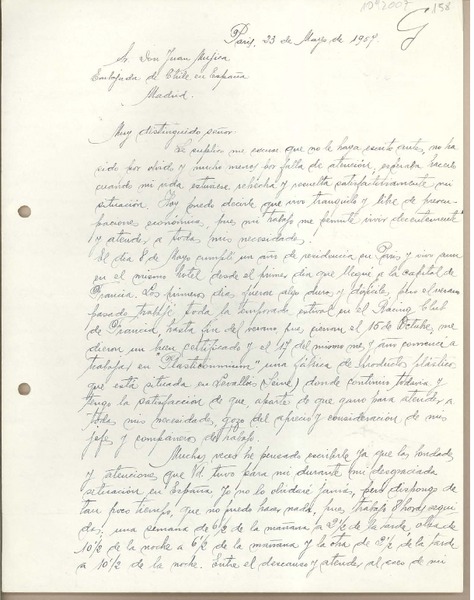 10º 2007
158
G
París, 23 de Mayo, de 1957.
Sr. Don Juan Mujica
Embajada de Chile en España
Madrid.
Muy distinguido señor:
Le suplico me escuse que no le haya escrito antes, no ha
sido por olvido y mucho menos por falta de atención, esperaba hacerlo
cuando mi vida estuviera rehecha y resuelta satisfactoriamente mi
situación. Hoy puedo decirle que vivo tranquilo y libre de preocu-
paciones económica, pues mi trabajo me permite vivir decentemente
y atender a todas mis necesidades.
El día 8 de Mayo cumplí un año de residencia en París y vivo aun
en el mismo hotel desde el primer día que llegué a la capital de
Francia. Los primeros días fueron algo duros y difíciles, pero el verano
pasado trabajé toda la temporada estival en el Racing Club
de Francia, hasta fin del verano pues, cerraron el 15 de Octubre, me
dieron un buen certificado y el 17 del mismo mes, y año comencé a
trabajar en "Plasticomnium" una fábrica de productos plásticos
que está situada en Levallois (Seine) donde continuo todavía y
tengo la satisfacción de que, aparte de que gano para atender a
todas mis necesidades, gozo del aprecio y consideración de mis
jefes y compañeros de trabajo.
Muchas veces he pensado escribirle ya que las bondades
y atenciones que Vd. tuvo para mí durante mi desgraciada
situación en España yo no lo olvidaré jamás, pero dispongo de
tan poco tiempo, que no puedo hacer nada, pues trabajo 8 horas segui
das; una semana de 6½ de la mañana a 2½ de la tarde, otra de
10½ de la noche a 6½ de la mañana y la otra de 2½ de la tarde
a 10½ de la noche. Entre el descanso y atender al aseo de mi